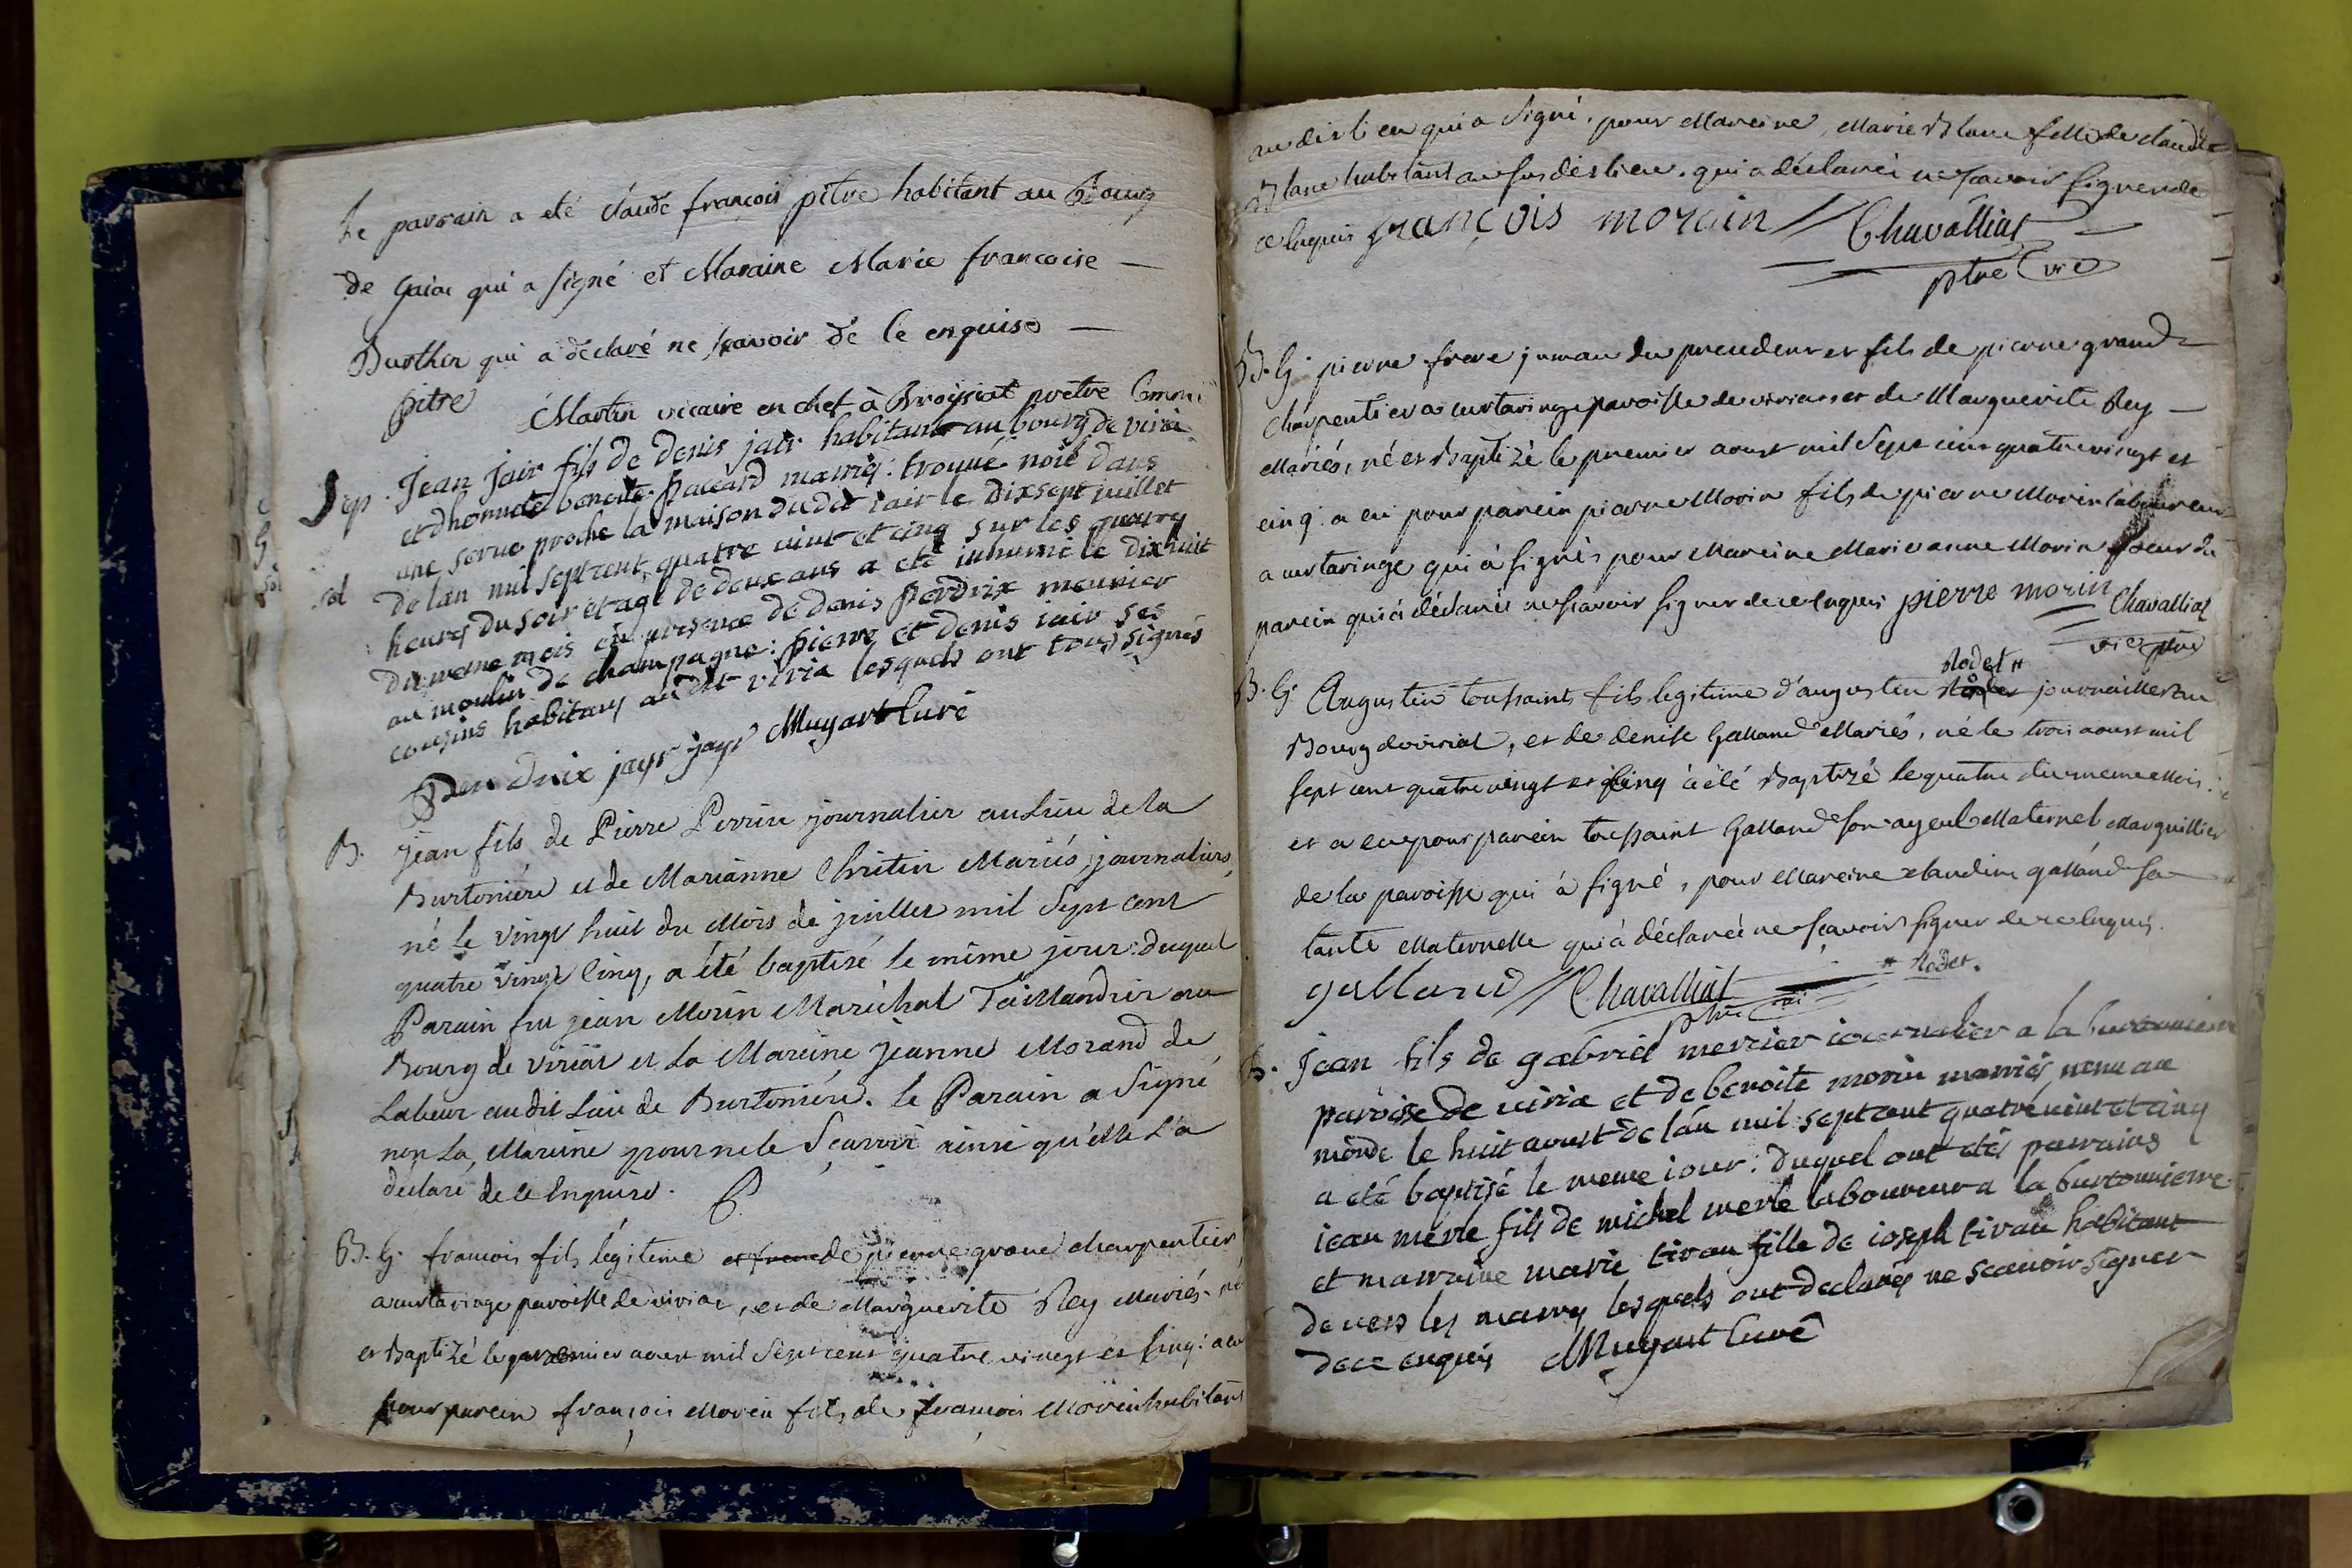 Le parrain a eté claude françois pitre habitant au Bourg
de qui a signé et Maraine Marie francoise
Burther qui a declaré ne sçavoir de ce enquise
pitre Martin vicaire en chef à Broissiat pretre Commi
Sep. Jean Jair fils de Denis jair habitant au bourg de viria
et dhonnete benoite paccard mariés. trouvé noié dans
une serve proche la maison dudit iair le dixsept juillet
de lan mil sept cent quatre vint et cinq sur les quatre
heures du soir et agé de deux ans a eté inhumé le dixhuit
du meme mois en presence de denis perdrix meunier
au moulin de champagne: pierre et denis iair ses
cousins habitans audit viria lesquels ont tous signés
Perdrix jayr jayr Muyart Curé
B. jean fils de Pierre Perrin journalier au Lieu de la
Burtonière et de Marianne Chritin Mariés, journaliers,
né le vingt huit du Mois de juillet mil Sept cent
quatre vingt Cinq, a été baptisé le même jour: duquel
Parain fut jean Morin Maréchal Taillandier au
Bourg de viriat et la Mareine jeanne Morand de
Labeur audit Lieu de Burtonière. le Parain a Signé
non La Mareine pour ne le Sçavoir ainsi qu'elle l'a
déclaré de ce Enquise.
B. G. francois fils légitime de pierre grand charpentier
a curtaringe paroisse de viriat, et de Marguerite Rey Mariés. né
et Baptizé le premier aoust mil Sept cent quatre vingt et Cinq: a eu
pour parein françois Morin fils de françois Morin habitant
au dit lieu qui a signé. pour Mareine, Marie Blanc fille de claude
Blanc habitant au susdit lieu. qui a déclarée ne scavoir signer de
ce Enquis françois morain // Chavalliat
ptre vic
B. G. pierre frere jumau du precedent et fils de pierre grand
charpentier a curtaringe paroisse de viriat et de Marguerite Rey
Mariés, né et Baptizé le premier aoust mil Sept cent quatrevingt et
cinq. a eu pour parein pierre Morin fils de pierre Morin laboureur
a curtaringe qui à signé, pour Mareine Marieanne Morin soeur du
parein qui à déclarée ne scavoir signer de ce Enquis pierre morin Chavalliat
vic ptre
Rodet #
B. G. Augustin toussaint fils legitime d'augustin journaillier au
Bourg de viriat, et de denise Galland Mariés, né le trois aoust mil
sept cent quatre vingt et Cinq à été Baptizé le quatre du meme Mois:
et a eu pour parein toussaint Galland son ayeul Maternel Marguillier
de la paroisse qui à signé, pour Mareine claudine galland sa
tante Maternelle qui à déclarée ne scavoir signer de ce Enquis.
galland // Chavalliat # Rodet.
ptre vic
B. Jean fils de gabriel mercier iournalier a la burtonniere
paroisse de viria et de benoite morin mariés, venu au
monde le huit aoust de lan mil sept cent quatre vint et cinq
a eté baptisé le meme iour: duquel ont etés parrains
iean merle fils de michel merle laboureur a la burtonnierre
et marraine marie tivan fille de ioseph tivan habitant
de vers les mares lesquels ont declarés ne scauoir signer
de ce enquis Muyart Curé